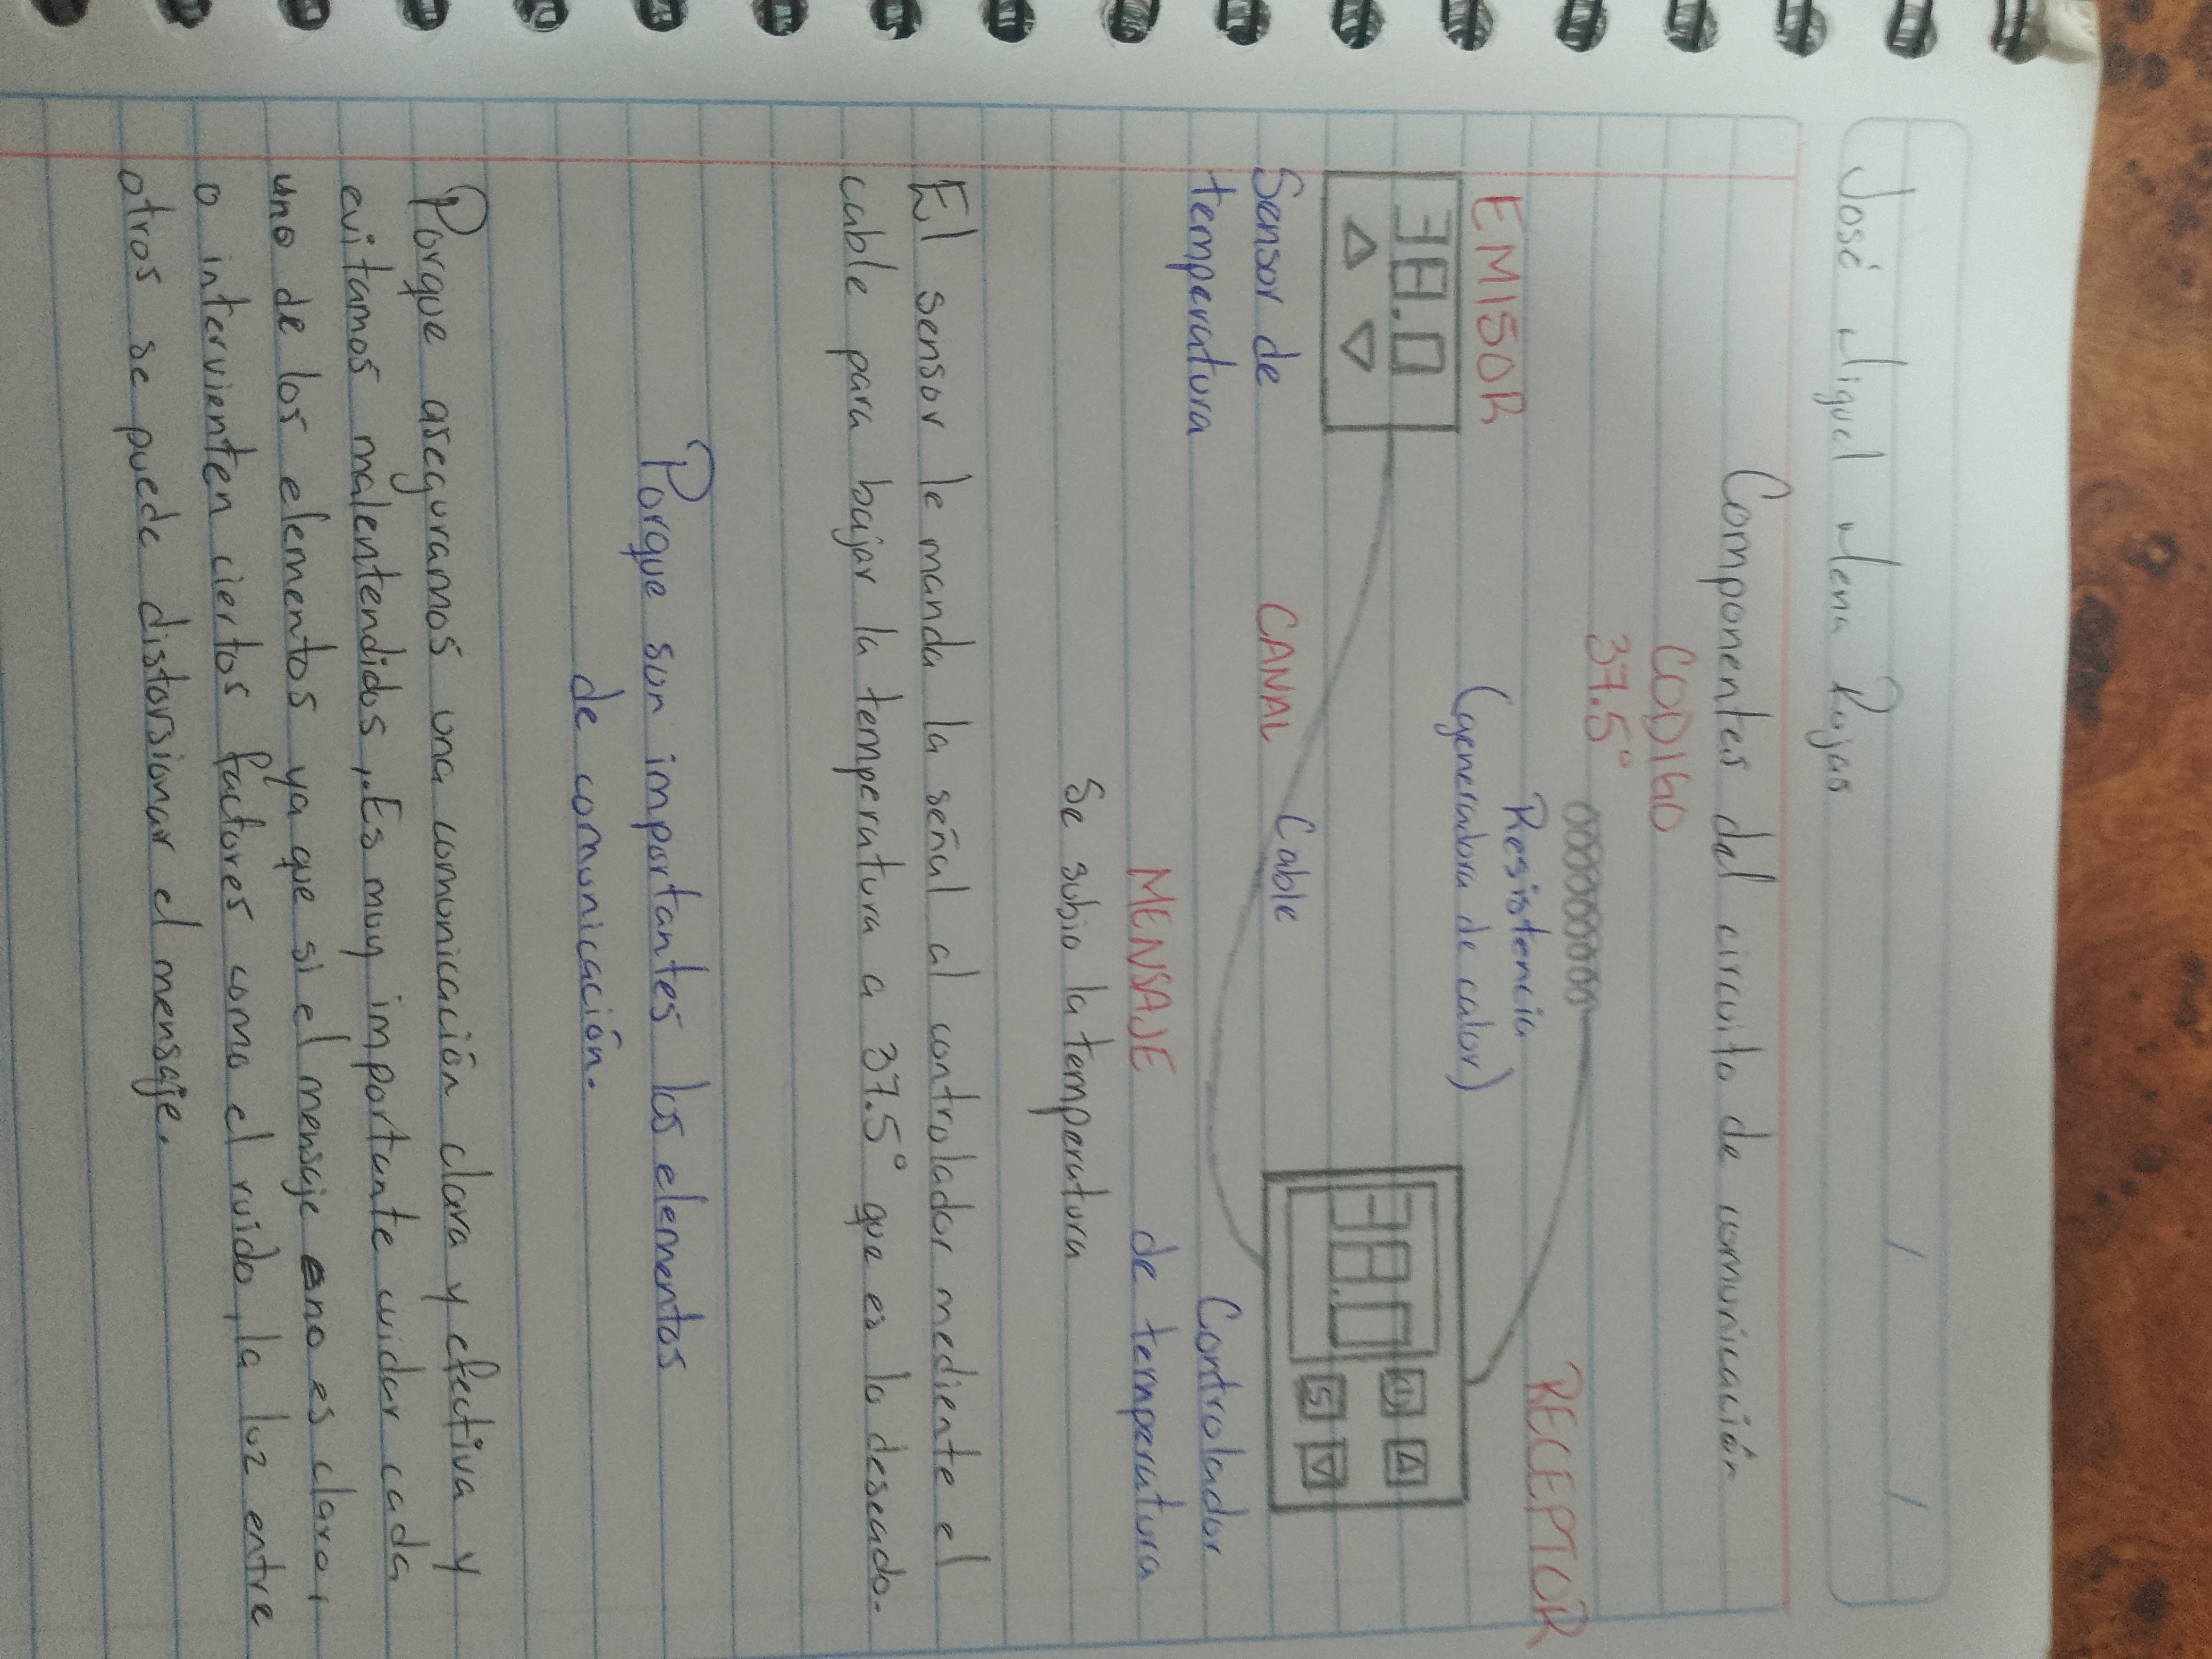 José Miguel Mena Rojas
Componentes del circuito de comunicación
CODIGO
37.5°
Resistencia
(generadora de calor)
EMISOR
RECEPTOR
38.0
38.0
S
Sensor de
temperatura
CANAL
Cable
Controlador
de temperatura
MENSAJE
Se subio la temperatura
El sensor le manda la señal al controlador mediente el
cable para bajar la temperatura a 37.5° que es lo deseado.
Porque son importantes los elementos
de comunicación.
Porque aseguramos una comunicación clara y efectiva y
evitamos malentendidos,..Es muy importante cuidar cada
uno de los elementos ya que si el mensaje no es claro,
o intervienten ciertos factores como el ruido, la luz entre
otros se puede distorsionar el mensaje.